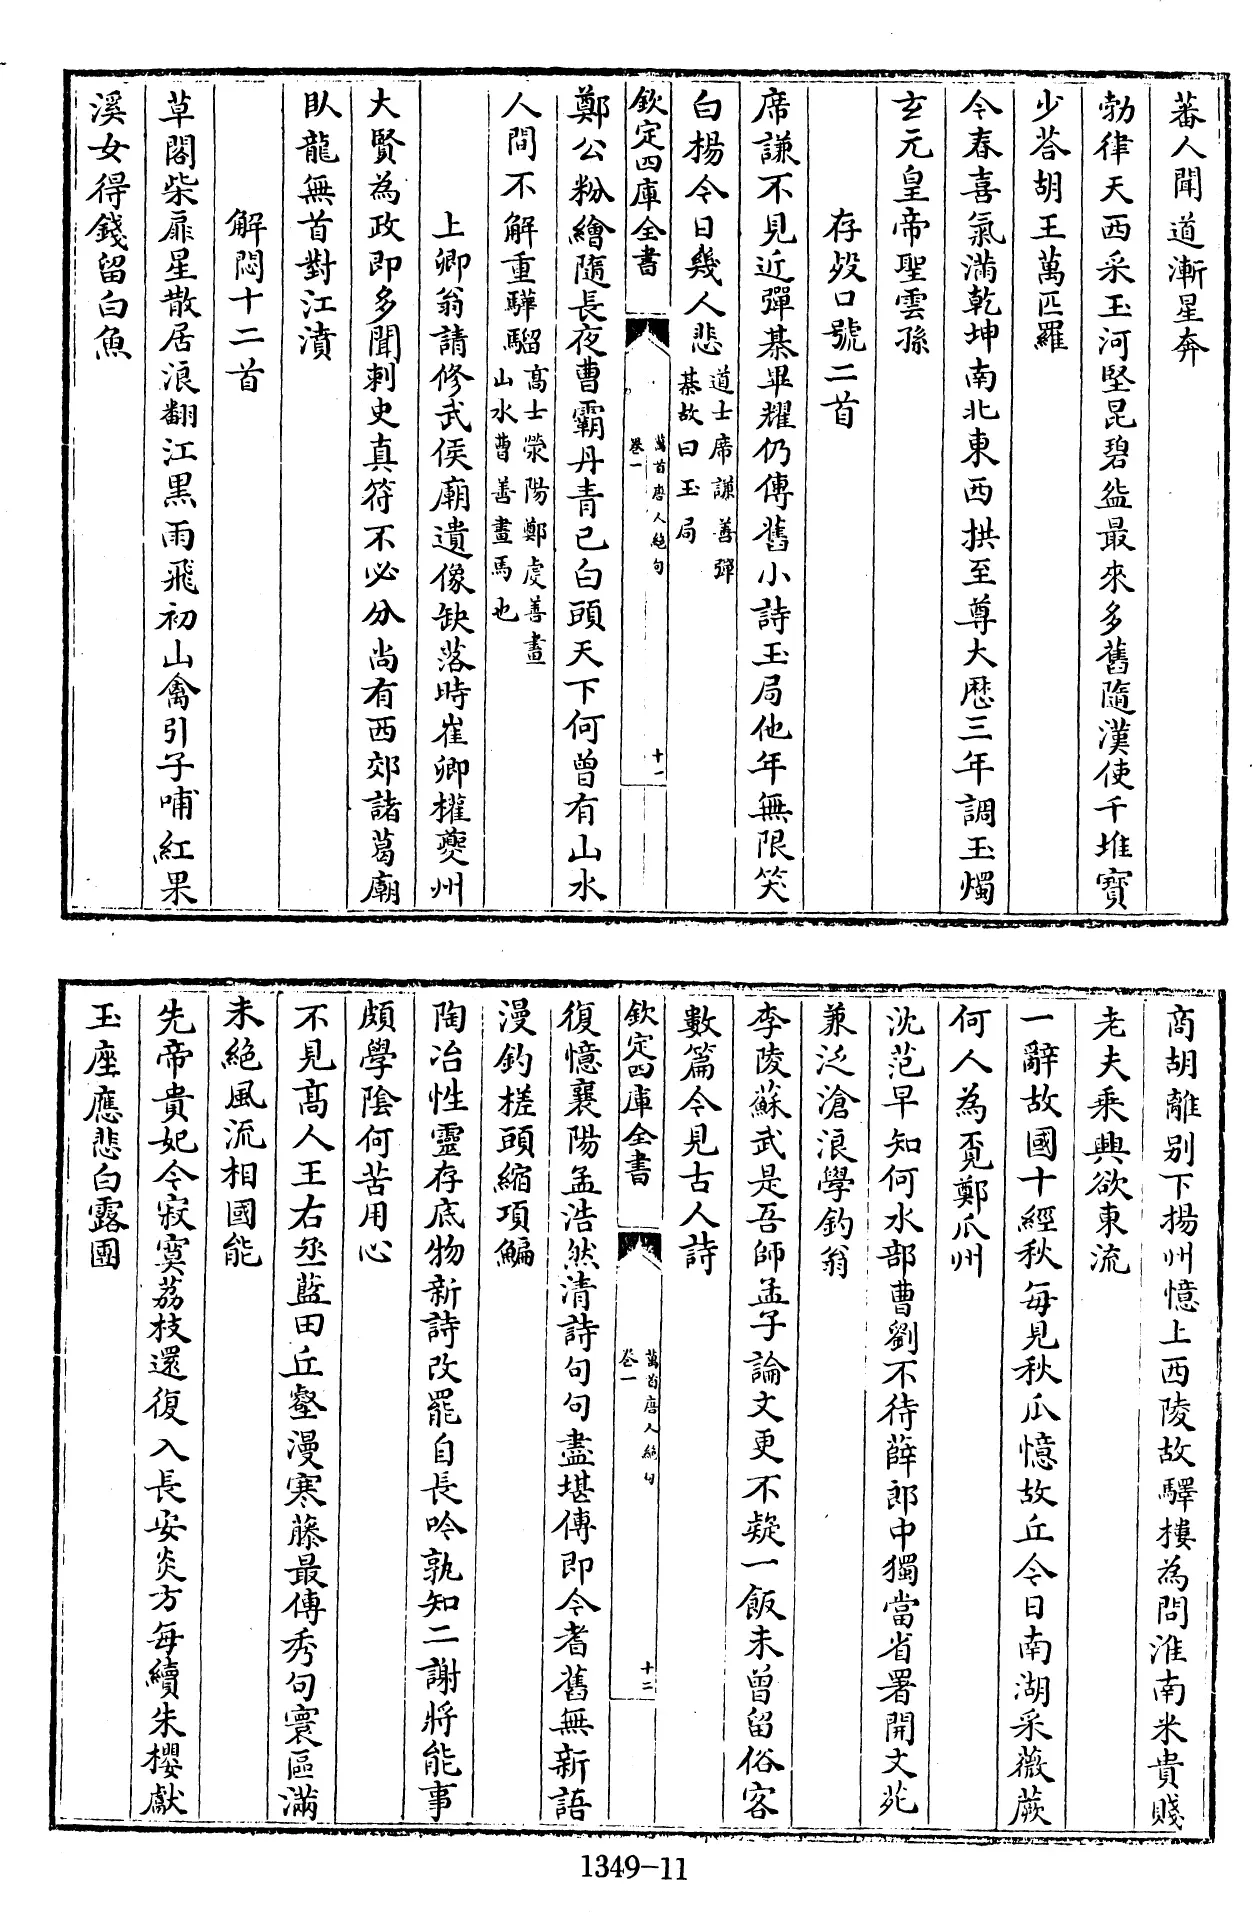 蕃人聞道漸星奔
勃律天西采玉河堅昆碧盌最來多舊隨漢使千堆寳
少荅胡王萬匹羅
今春喜氣滿乾坤南北東西拱至尊大歴三年調玉燭
玄元皇帝聖雲孫
存殁口號二首
席謙不見近彈棊畢耀仍傳舊小詩玉局他年無限笑
白楊今日幾人悲道士席謙善彈
棊故曰玉局
欽定四庫全書
萬首唐人絶句
卷一
十一
鄭公粉繪隨長夜曹霸丹青已白頭天下何曾有山水
人間不解重驊騮高士滎陽鄭虔善畫
山水曹善畫馬也
上卿翁請修武侯廟遺像缺落時崔卿權夔州
大賢為政即多聞刺史真符不必分尚有西郊諸葛廟
臥龍無首對江濆
解悶十二首
草閣柴扉星散居浪翻江黒雨飛初山禽引子哺紅果
溪女得錢留白魚
商胡離别下揚州憶上西陵故驛樓為問淮南米貴賤
老夫乘興欲東流
一辭故國十經秋每見秋瓜憶故丘今日南湖采薇蕨
何人為覔鄭瓜州
沈范早知何水部曹劉不待薛郎中獨當省署開文苑
兼泛滄浪學釣翁
李陵蘇武是吾師孟子論文更不疑一飯未曽留俗客
數篇今見古人詩
欽定四庫全書
萬首唐人絶句
卷一
十二
復憶襄陽孟浩然清詩句句盡堪傳即今耆舊無新語
漫釣槎頭縮項鯿
陶冶性靈存底物新詩改罷自長吟孰知二謝將能事
頗學陰何苦用心
不見髙人王右丞藍田丘壑漫寒藤最傳秀句寰區滿
未絶風流相國能
先帝貴妃今寂寞荔枝還復入長安炎方每續朱櫻獻
玉座應悲白露團
1349-11